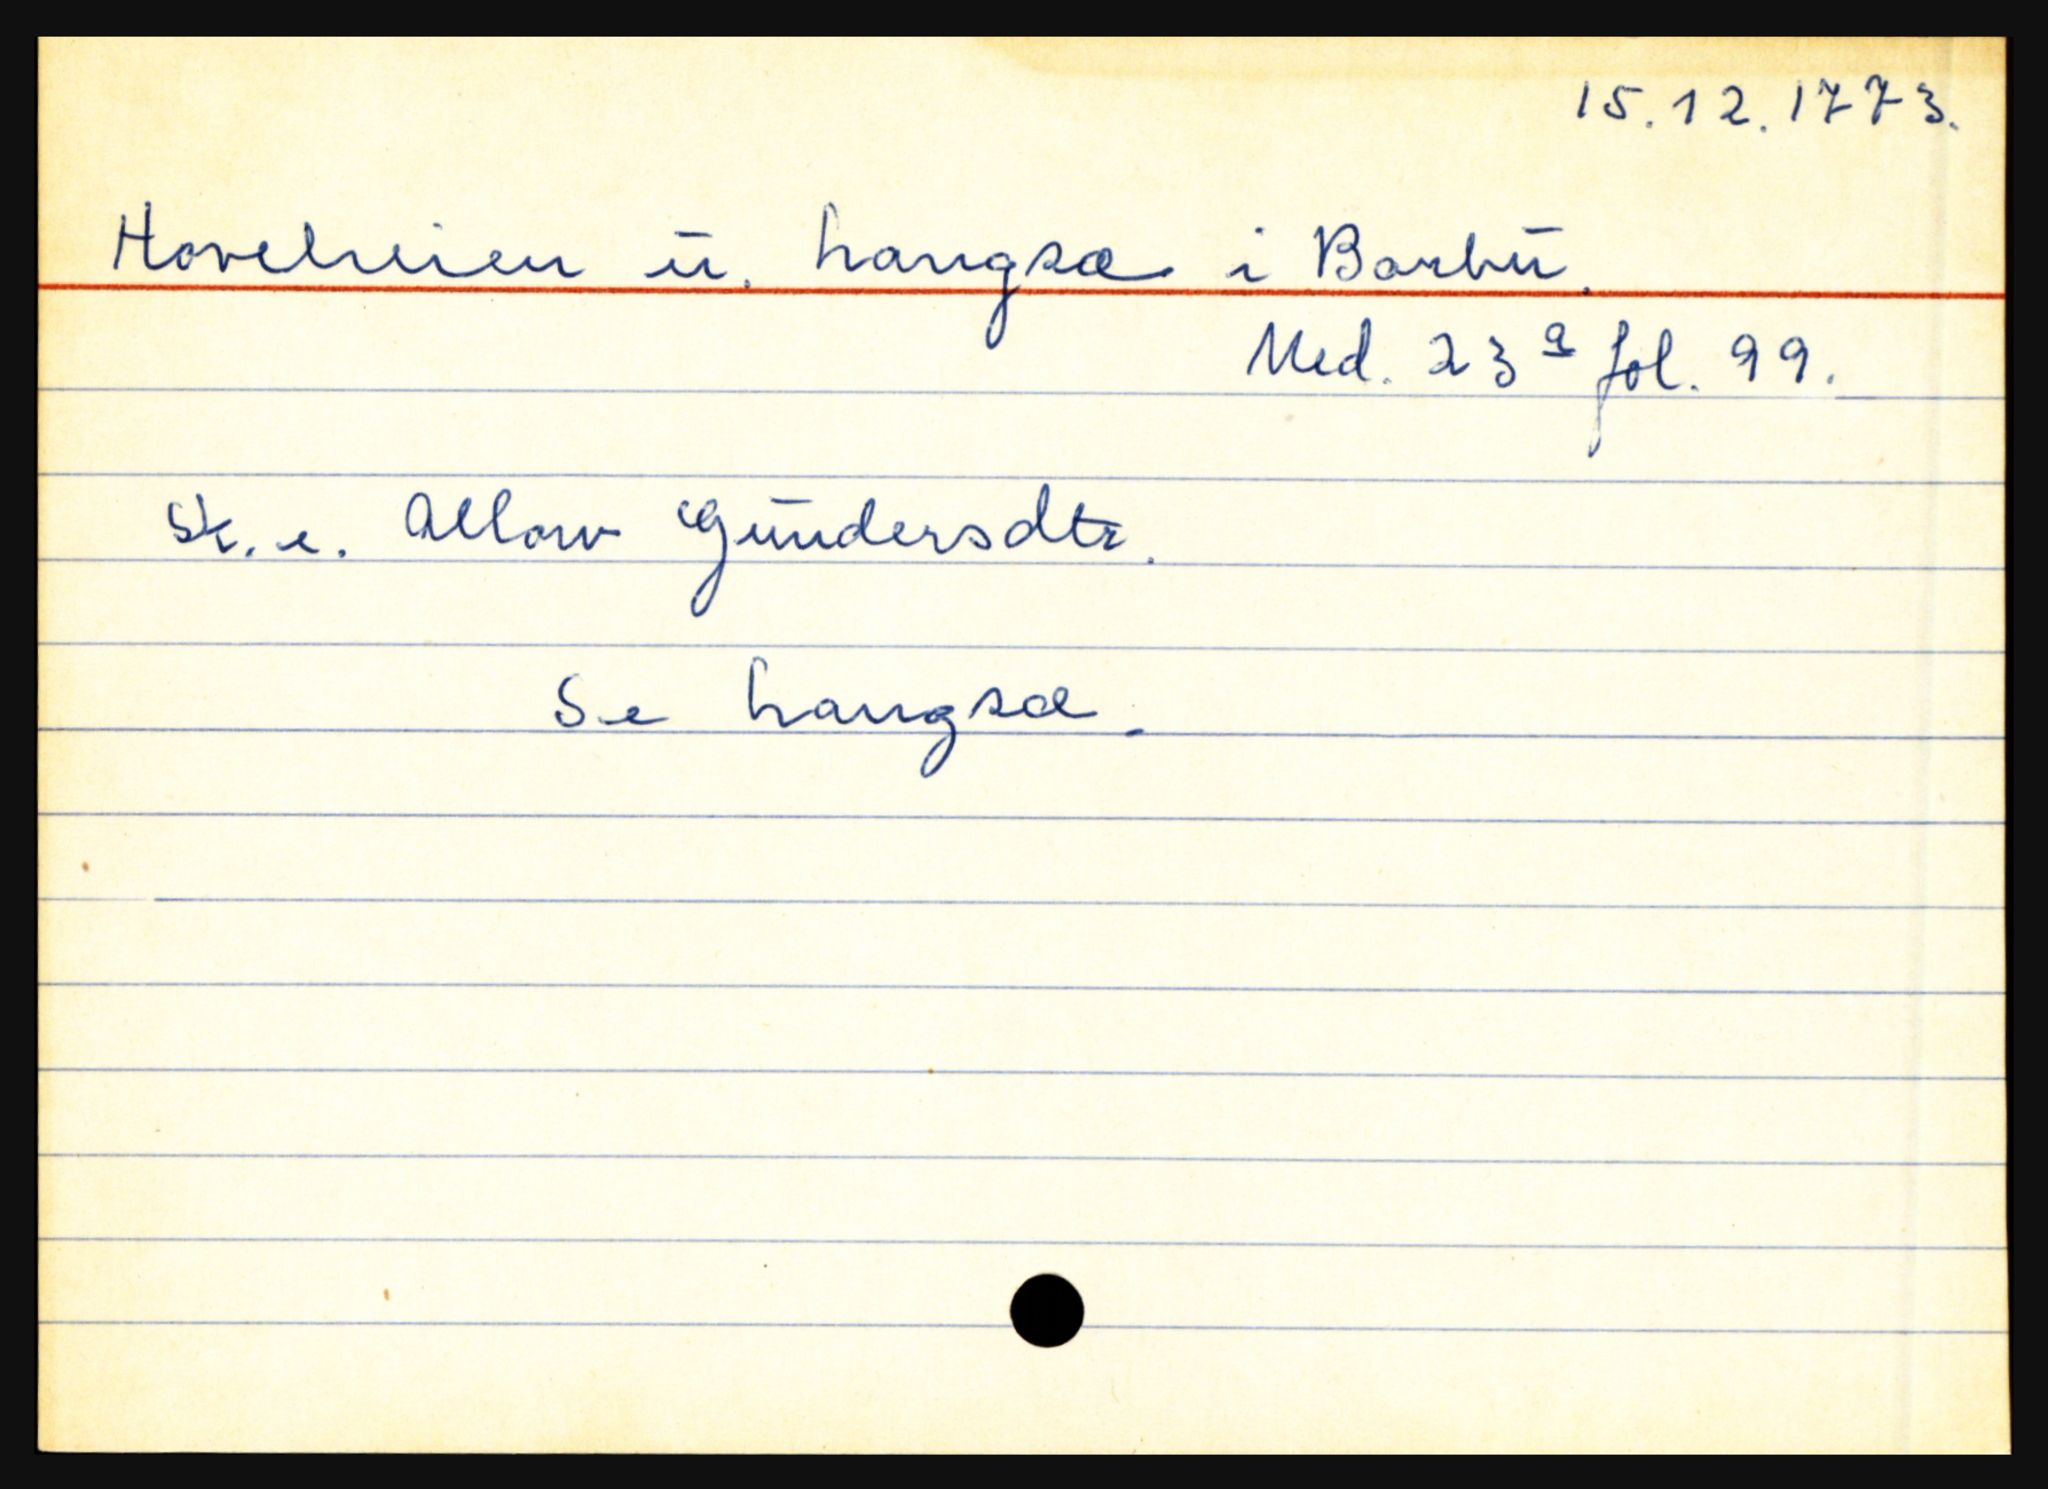 15.12.1773.
Hovelheien u. Langsæ i Barbu.
Ned. 23ª fol. 99.
Sk. e. Allow Gundersdtr.
Se Langsæ.